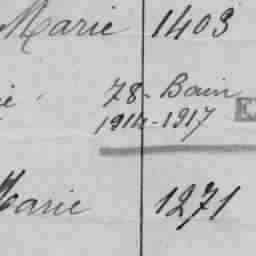 Marie 1403
78 - Bain
1914 - 1917
Marie 1271